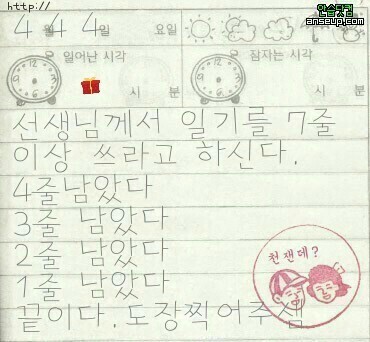 http://
안습닷컴
anseup.com
4월 4 4일 요일
일어난 시각 잠자는 시각
시 분 시 분
선생님께서 일기를 7줄
이상 쓰라고 하신다.
4줄남았다
3줄 남았다
2줄 남았다
1줄 남았다
끝이다. 도장찍어주셈
천잰데?